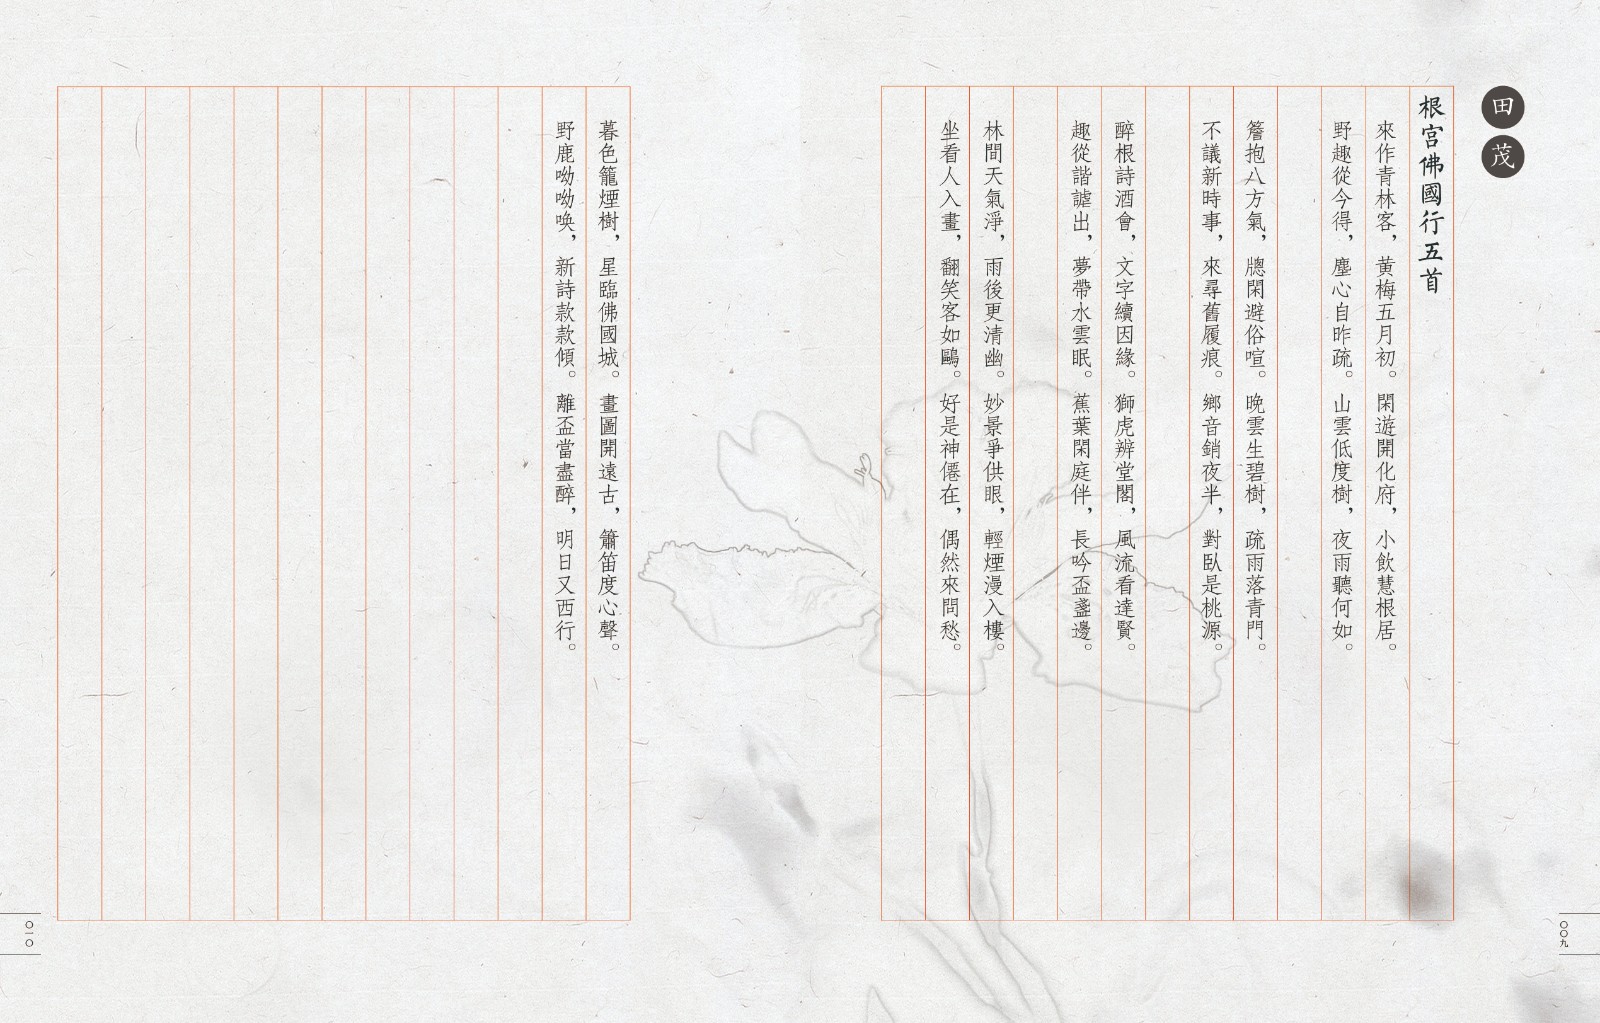 田茂
根宮佛國行五首
來作青林客，黃梅五月初。閑遊開化府，小飲慧根居。
野趣從今得，塵心自昨疏。山雲低度樹，夜雨聽何如。
簷抱八方氣，牕閑避俗喧。晚雲生碧樹，疏雨落青門。
不議新時事，來尋舊履痕。鄉音銷夜半，對臥是桃源。
醉根詩酒會，文字續因緣。獅虎辨堂閣，風流看達賢。
趣從諧謔出，夢帶水雲眠。蕉葉閑庭伴，長吟盃盞邊。
林間天氣淨，雨後更清幽。妙景爭供眼，輕煙漫入樓。
坐看人入畫，翻笑客如鷗。好是神僊在，偶然來問愁。
〇〇九
暮色籠煙樹，星臨佛國城。畫圖開遠古，簫笛度心聲。
野鹿呦呦喚，新詩款款傾。離盃當盡醉，明日又西行。
〇一〇